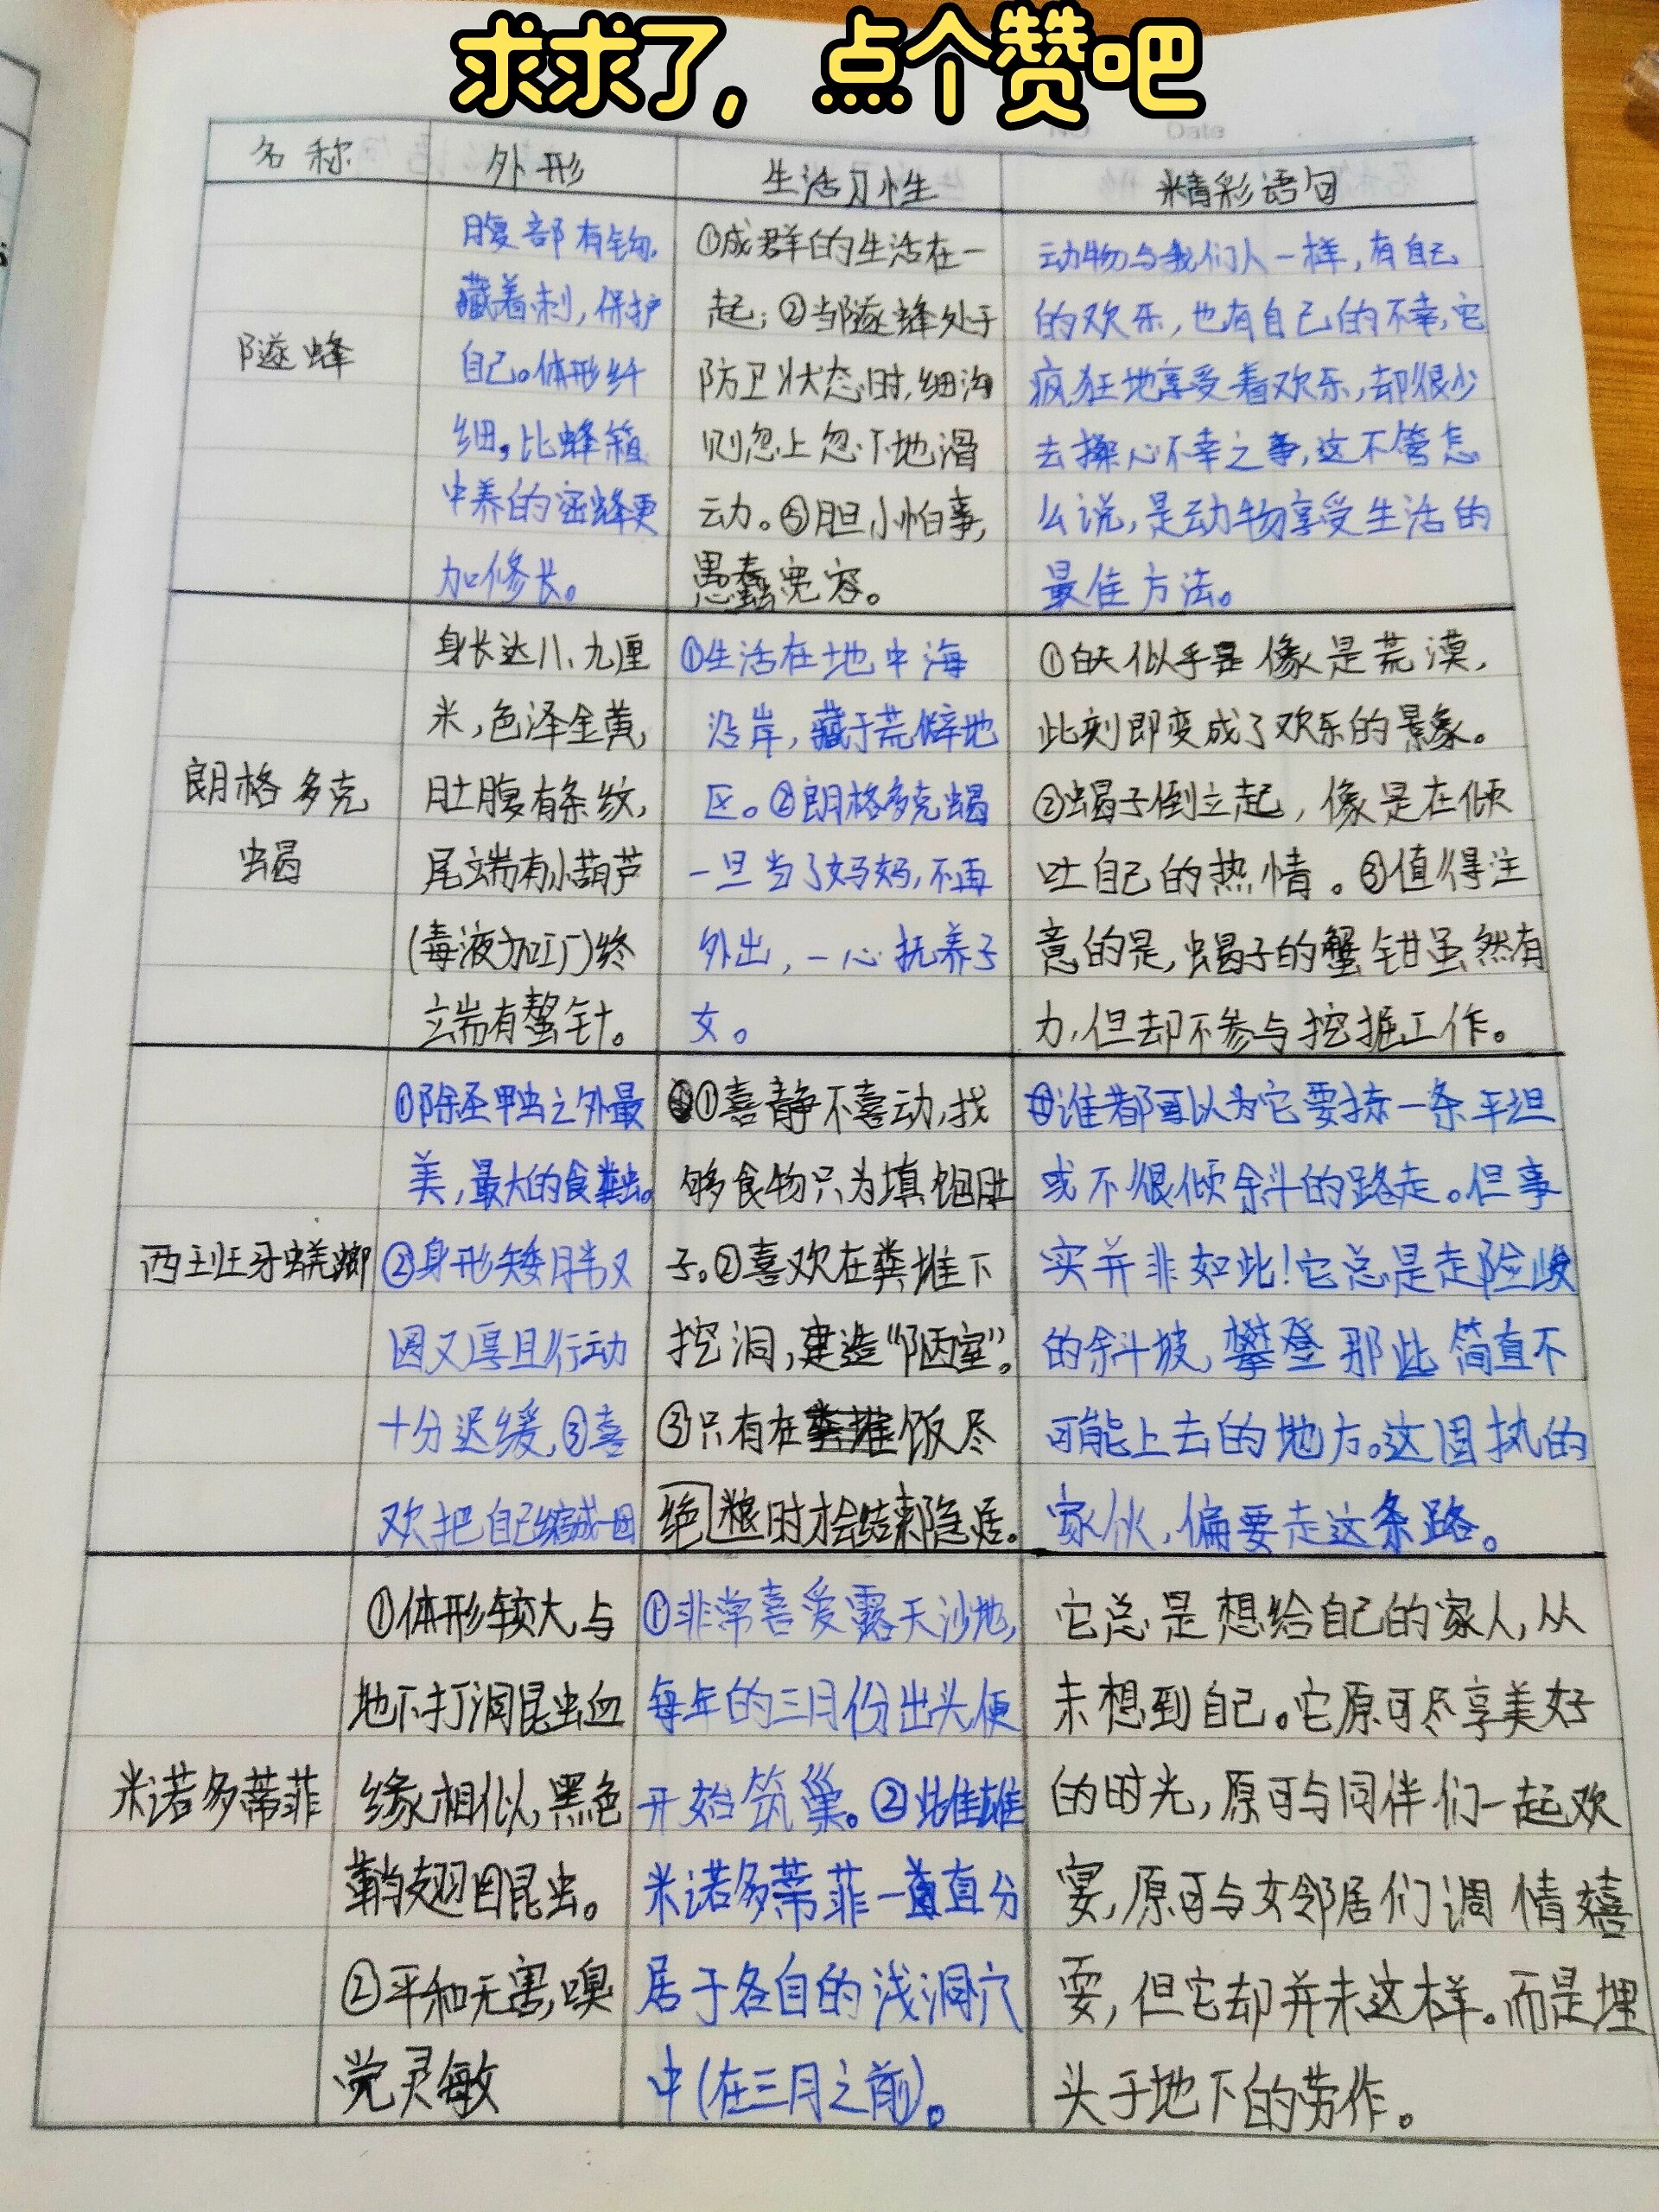 求求了，点个赞吧
名称 外形 生活习性 精彩语句
隧蜂
腹部有钩，
藏着刺，保护
自己。体形纤
细，比蜂箱
中养的密蜂更
加修长。
①成群的生活在一
起；②当隧蜂处于
防卫状态时，细沟
则忽上忽下地滑
动。③胆小怕事，
愚蠢宽容。
动物与我们人一样，有自己
的欢乐，也有自己的不幸，它
疯狂地享受着欢乐，却很少
去操心不幸之事，这不管怎
么说，是动物享受生活的
最佳方法。
朗格多克
蝎
身长达八、九厘
米，色泽金黄，
肚腹有条纹，
尾端有小葫芦
(毒液加工厂)终
端有螯针。
①生活在地中海
沿岸，藏于荒僻地
区。②朗格多克蝎
一旦当了妈妈，不再
外出，一心抚养子
女。
①白天似乎是像是荒漠，
此刻即变成了欢乐的景象。
②蝎子倒立起，像是在倾
吐自己的热情。③值得注
意的是，蝎子的蟹钳虽然有
力，但却不参与挖掘工作。
西班牙蜣螂
①除圣甲虫之外最
美，最大的食粪虫。
②身形矮胖又
圆又厚且行动
十分迟缓，③喜
欢把自己缩成一团
①喜静不喜动，找
够食物只为填饱肚
子。②喜欢在粪堆下
挖洞，建造“陋室”。
③只有在饭尽
绝粮时才会结束隐居。
谁都可以为它要拣一条平坦
或不很倾斜的路走。但事
实并非如此！它总是走险峻
的斜坡，攀登那些简直不
可能上去的地方。这固执的
家伙，偏要走这条路。
米诺多蒂菲
①体形较大，与
地下打洞昆虫血
缘相似，黑色
鞘翅目昆虫。
②平和无害，嗅
觉灵敏
①非常喜爱露天沙地，
每年的三月份出头便
开始筑巢。②雌雄
米诺多蒂菲一直直分
居于各自的浅洞穴
中(在三月之前)。
它总是想给自己的家人，从
未想到自己。它原可尽享美好
的时光，原可与同伴们一起欢
宴，原可与女邻居们调情嬉
耍，但它却并未这样。而是埋
头于地下的劳作。